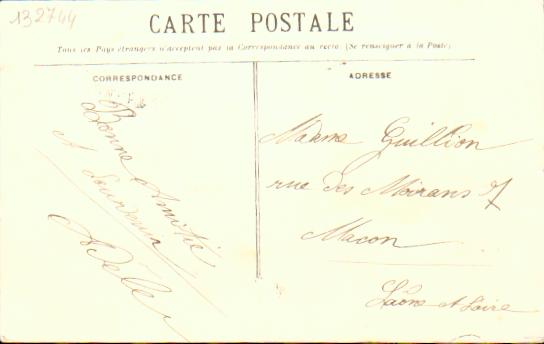 132744
CARTE POSTALE
Tous les Pays étrangers n'acceptent pas la Correspondance au recto (Se renseigner à la Poste)
CORRESPONDANCE
ADRESSE
Bonne Amitié
A
Adèle
Madame Guillion
rue des Moirans 7
Macon
Saône et Loire